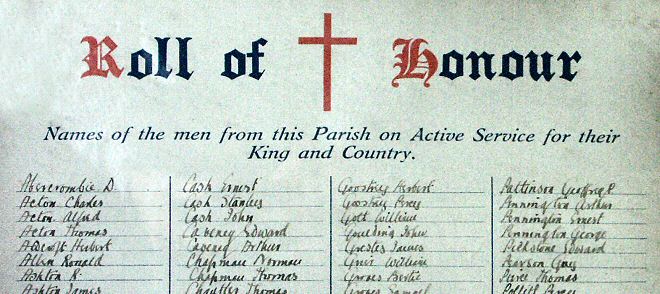 Roll of Honour
Names of the men from this Parish on Active Service for their
King and Country.
Abercrombie D.
Acton Charles
Acton Alfred
Acton Thomas
Herbert
Allen Ronald
Ashton R.
Ashton James
Cash Ernest
Cash Stanley
Cash John
Caveney Edward
Caveney Arthur
Chapman Norman
Chapman Thomas
Thomas
Goostrey Herbert
Goostrey Percy
Gott William
Goulding John
James
William
Bertie
Samuel
Pattinson
Pennington Arthur
Pennington Ernest
Pennington George
Edward
Pearson Guy
Thomas